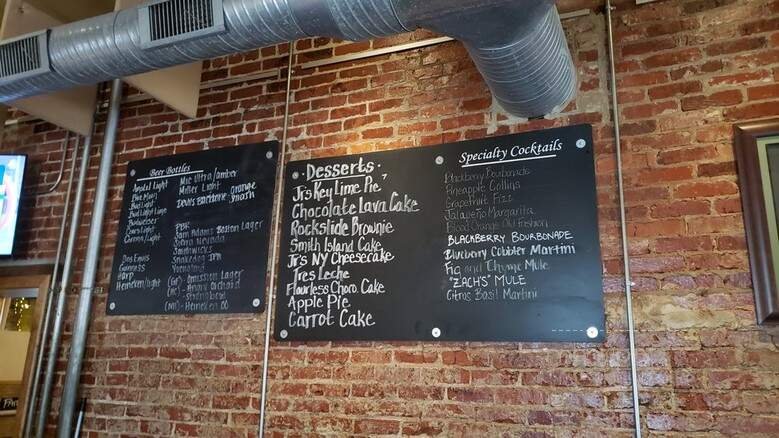 Beer Bottles
Amstel Light
Blue Moon
Bud Light
Bud Light Lime
Budweiser
Coors Light
Corona/Light
Dos Equis
Guinness
Harp
Heineken/light
Mic Ultra/amber
Miller Light
Devils Backbone orange smash
PBR
Sam Adams Boston Lager
Sierra Nevada
Snakedog IPA
Yuengling
(GF) Omission Lager
(HC) - Angry Orchard
- Strongbow
(NA) - Heineken 00
• Desserts •
Jr's Key Lime Pie
Chocolate Lava Cake
Rockslide Brownie
Smith Island Cake
Jr's NY Cheesecake
Tres Leche
Flourless Choco. Cake
Apple Pie
Carrot Cake
Specialty Cocktails
Blackberry Bourbonade
Pineapple Collins
Grapefruit Fizz
Jalapeño Margarita
Blood Orange Old Fashion
BLACKBERRY BOURBONADE
Blueberry Cobbler Martini
Fig and Thyme Mule
"ZACH'S" MULE
Citrus Basil Martini